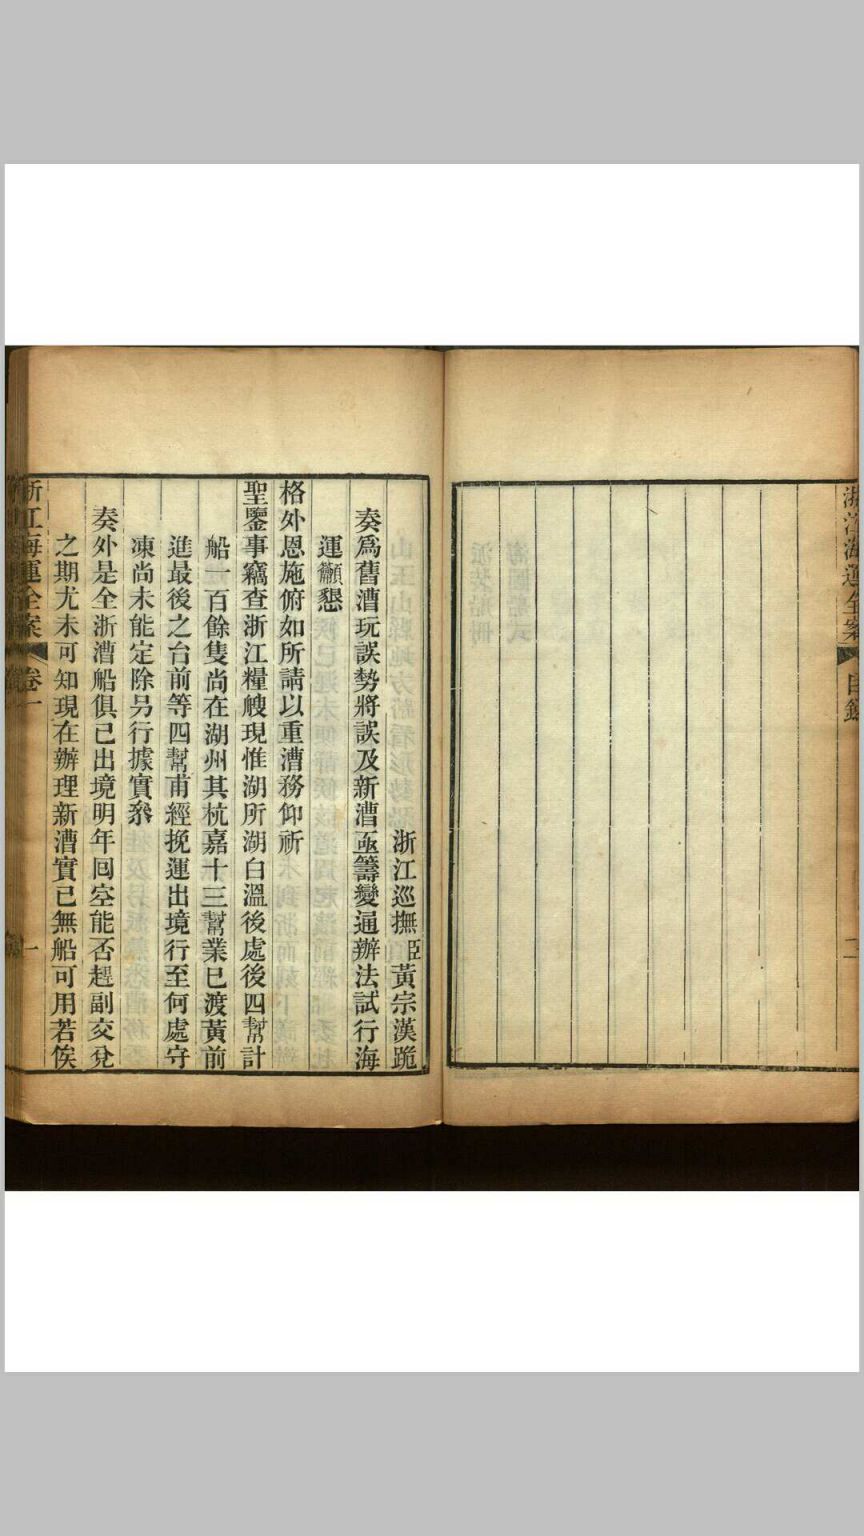 浙江海運全案
目錄
二
浙江巡撫臣黃宗漢跪
奏爲舊漕玩誤勢將誤及新漕亟籌變通辦法試行海
運籲懇
格外恩施俯如所請以重漕務仰祈
聖鑒事竊查浙江糧艘現惟湖所湖白溫後處後四幫計
船一百餘隻尚在湖州其杭嘉十三幫業已渡黃前
進最後之台前等四幫甫經挽運出境行至何處守
凍尚未能定除另行據實叅
奏外是全浙漕船俱已出境明年囘空能否趕副交兌
之期尤未可知現在辦理新漕實已無船可用若俟
浙江海運全案
卷一
一